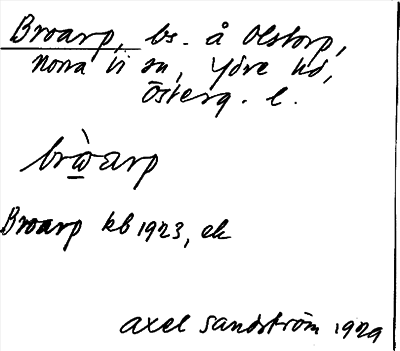 Broarp, bs. å Olstorp,
Norra Vi sn, Ydre hd,
Österg. l.
brωarp
Broarp kb 1923, ek
Axel Sandström 1929